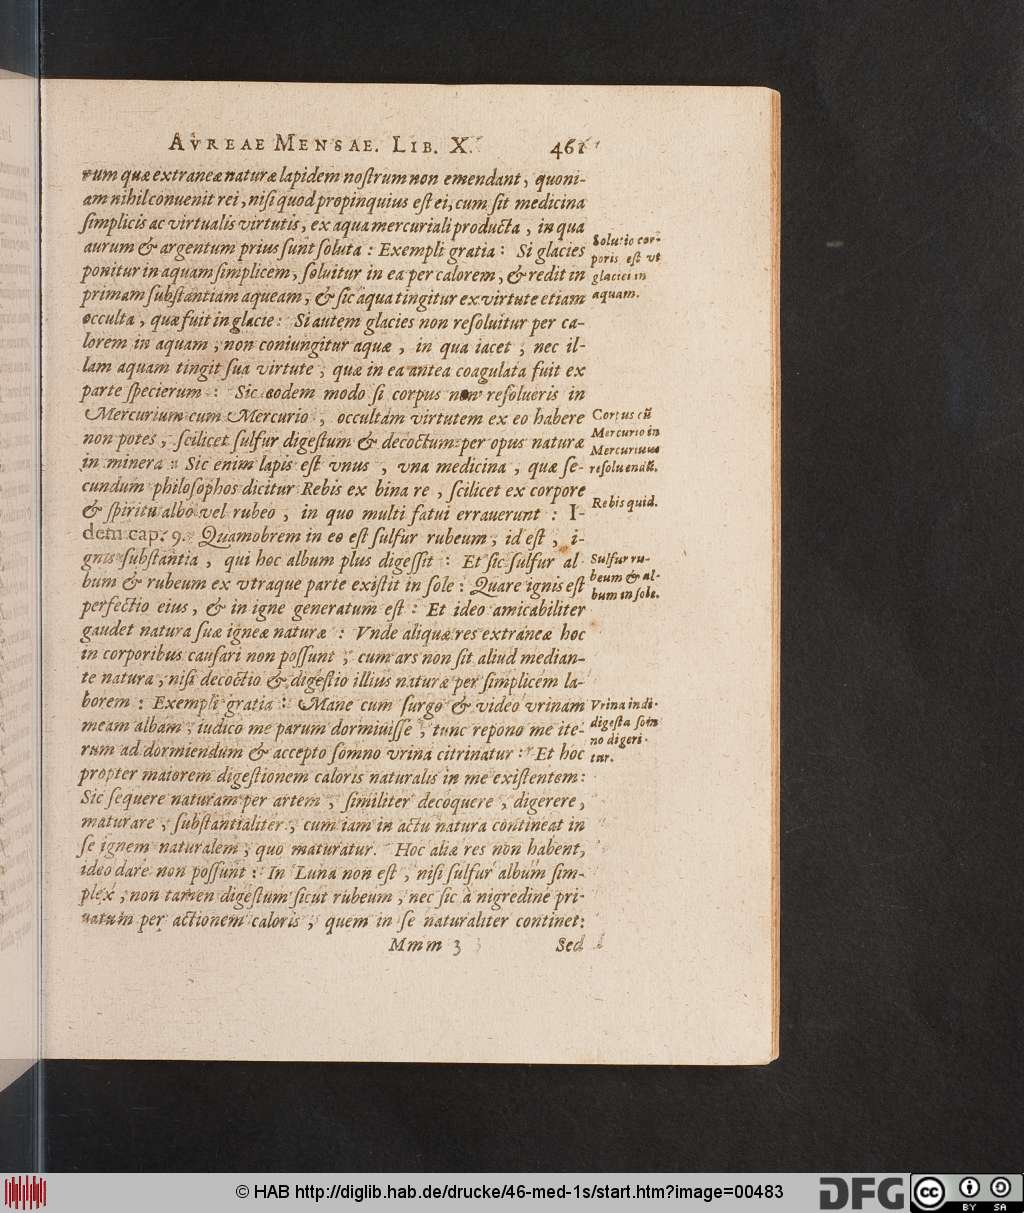 AVREAE MENSAE. LIB. X. 461
rum quæ extraneæ naturæ lapidem nostrum non emendant, quoni-
am nihil conuenit rei, nisi quod propinquius est ei, cum sit medicina
simplicis ac virtualis virtutis, ex aqua mercuriali producta, in qua
aurum & argentum prius sunt soluta: Exempli gratia: Si glacies
ponitur in aquam simplicem, soluitur in ea per calorem, & redit in
primam substantiam aqueam, & sic aqua tingitur ex virtute etiam
occulta, quæ fuit in glacie: Si autem glacies non resoluitur per ca-
lorem in aquam, non coniungitur aquæ, in qua iacet, nec il-
lam aquam tingit sua virtute, quæ in ea antea coagulata fuit ex
parte specierum: Sic eodem modo si corpus non resolueris in
Mercurium cum Mercurio, occultam virtutem ex eo habere
non potes, scilicet sulfur digestum & decoctum per opus naturæ
in minera: Sic enim lapis est vnus, vna medicina, quæ se-
cundum philosophos dicitur Rebis ex bina re, scilicet ex corpore
& spiritu albo vel rubeo, in quo multi fatui errauerunt: I-
dem cap. 9. Quamobrem in eo est sulfur rubeum, id est, i-
gnis substantia, qui hoc album plus digessit: Et sic sulfur al-
bum & rubeum ex vtraque parte existit in sole: Quare ignis est
perfectio eius, & in igne generatum est: Et ideo amicabiliter
gaudet natura suæ igneæ naturæ: Vnde aliquæ res extraneæ hoc
in corporibus causari non possunt, cum ars non sit aliud median-
te natura, nisi decoctio & digestio illius naturæ per simplicem la-
borem: Exempli gratia: Mane cum surgo & video vrinam
meam albam, iudico me parum dormiuisse, tunc repono me ite-
rum ad dormiendum & accepto somno vrina citrinatur: Et hoc
propter maiorem digestionem caloris naturalis in me existentem:
Sic sequere naturam per artem, similiter decoquere, digerere,
maturare, substantialiter, cum iam in actu natura contineat in
se ignem naturalem, quo maturatur. Hoc aliæ res non habent,
ideo dare non possunt: In Luna non est, nisi sulfur album sim-
plex, non tamen digestum sicut rubeum, nec sic à nigredine pri-
uatum per actionem caloris, quem in se naturaliter continet:
Mmm 3 Sed
Solutio cor-
poris est vt
glaciei in
aquam.
Corpus cũ
Mercurio in
Mercurium
resoluendũ.
Rebis quid.
Sulfur ru-
beum & al-
bum in sole.
Vrina indi-
digesta som
no digeri-
tur.
© HAB http://diglib.hab.de/drucke/46-med-1s/start.htm?image=00483
DFG
cc BY SA